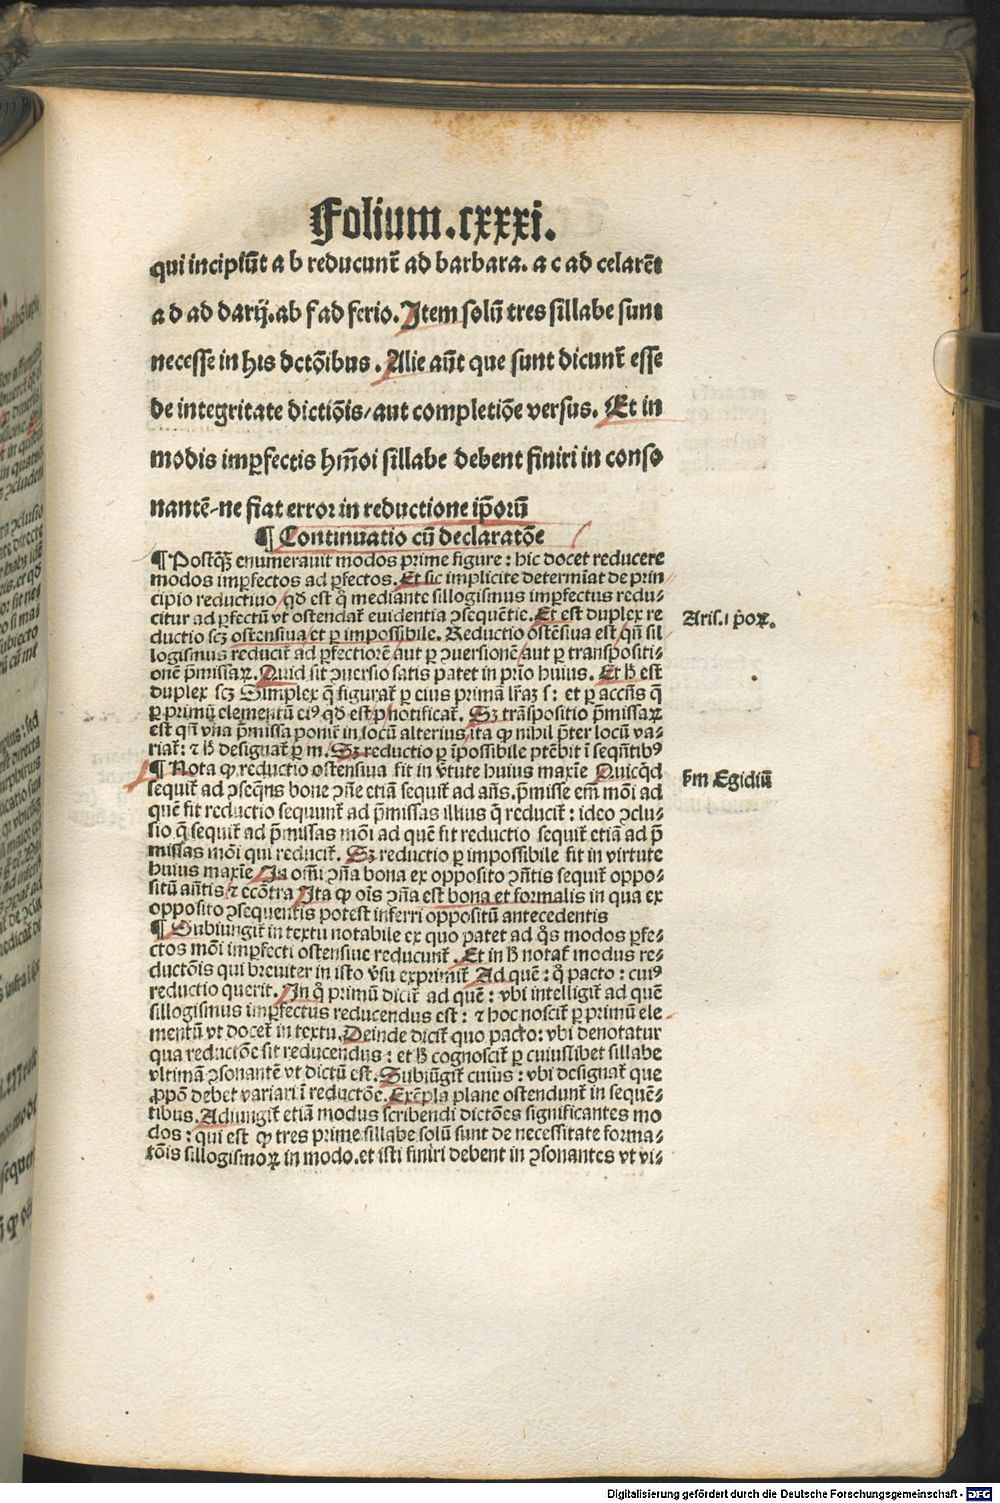 Folium.cxxxi.
qui incipiūt a b reducunt̄ ad barbara. a c ad celarēt
a d ad darij. ab f ad ferio. Item solū tres sillabe sunt
necesse in his dctōibus. Alie aūt que sunt dicunt̄ esse
de integritate dictiōis/ aut completiōe versus. Et in
modis imꝑfectis hm̄oi sillabe debent finiri in conso
nantē-ne fiat error in reductione ip̄orū
¶ Continuatio cū declaratōe
¶ Postq̄ȝ enumeravit modos prime figure: hic docet reducere
modos imꝑfectos ad ꝑfectos. Et sic implicite determīat de prin
cipio reductiuo/ qd̄ est q̄ mediante sillogismus imꝑfectus redu⸗
citur ad ꝑfectū vt ostendat̄ euidentia ꝯsequētie. Et est duplex re
ductio scȝ ostensiua/ et ꝑ impossibile. Reductio ostēsiua est/ qn̄ sil
logismus reducit̄ ad ꝑfectiorē/ aut ꝑ ꝯuersionē/ aut ꝑ transpositi⸗
onē p̄missaꝝ. Quid sit ꝯuersio satis patet in prīo huius. Et h̄ est
duplex scȝ Simplex q̄ figurat̄ ꝑ eius primā lr̄aȝ s: et ꝑ accn̄s q̄
ꝑ primū elementū ei⁹ qd̄ est/ p/ notificat̄. Sȝ trāspositio p̄missaꝝ
est qn̄ vna p̄missa ponit̄ in locū alterius/ ita ꝙ nihil p̄ter locū va⸗
riat̄: ⁊ h̄ designat̄ ꝑ m. Sȝ reductio ꝑ īpossibile ptēbit ī seqn̄tib⁹
¶ Nota ꝙ reductio ostensiua fit in v̄tute huius maxīe Quicq̄d
sequit̄ ad ꝯseqn̄s bone ꝯn̄e etiā sequit̄ ad an̄s. p̄misse em̄ mōi ad
quē fit reductio sequunt̄ ad p̄missas illius q̄ reducit̄: ideo ꝯclu⸗
sio q̄ sequit̄ ad p̄missas mōi ad quē fit reductio sequit̄ etiā ad p̄
missas mōi qui reducit̄. Sȝ reductio ꝑ impossibile fit in virtute
huius maxīe In om̄i ꝯn̄a bona ex opposito ꝯn̄tis sequit̄ oppo⸗
sitū an̄tis/ ⁊ ecōtra Ita ꝙ oīs ꝯn̄a est bona et formalis in qua ex
opposito ꝯsequentis potest inferri oppositū antecedentis
¶ Subiungit̄ in textu notabile ex quo patet ad q̄s modos ꝑfe⸗
ctos mōi imꝑfecti ostensiue reducunt̄. Et in h̄ notat̄ modus re⸗
ductōis qui breuiter in isto v̄su exprimit̄ Ad quē: q̄ pacto: cui⁹
reductio querit. In q̄ primū dicit̄ ad quē: vbi intelligit̄ ad quē
sillogismus imꝑfectus reducendus est: ⁊ hoc noscit̄ ꝑ primū ele
mentū vt docet̄ in textu. Deinde dicit̄ quo pacto: vbi denotatur
qua reductōe sit reducendus: et h̄ cognoscit̄ ꝑ cuiuslibet sillabe
vltimā ꝯsonantē vt dictū est. Subiūgit̄ cuius: vbi designat̄ que
ꝓpō debet variari ī reductōe. Exēpla plane ostendunt̄ in sequē⸗
tibus. Adiungit̄ etiā modus scribendi dictōes significantes mo
dos: qui est ꝙ tres prime sillabe solū sunt de necessitate forma⸗
tōis sillogismoꝝ in modo. et isti finiri debent in ꝯsonantes vt vi⸗
Aris. i p̄oꝝ.
ẜm Egidiū
Digitalisierung gefördert durch die Deutsche Forschungsgemeinschaft - DFG